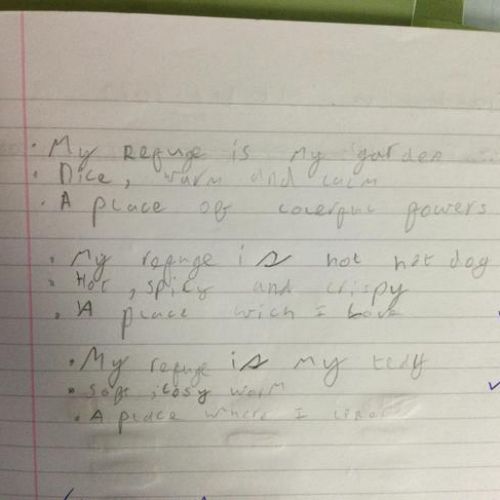 My Refuge is my garden
Nice, warm and calm
A place of coverful powers
My refuge is hot hot dog
Hot, spicy and crispy
A place wich I love
My refuge is my tedy
Soft, cosy worm
A place where I